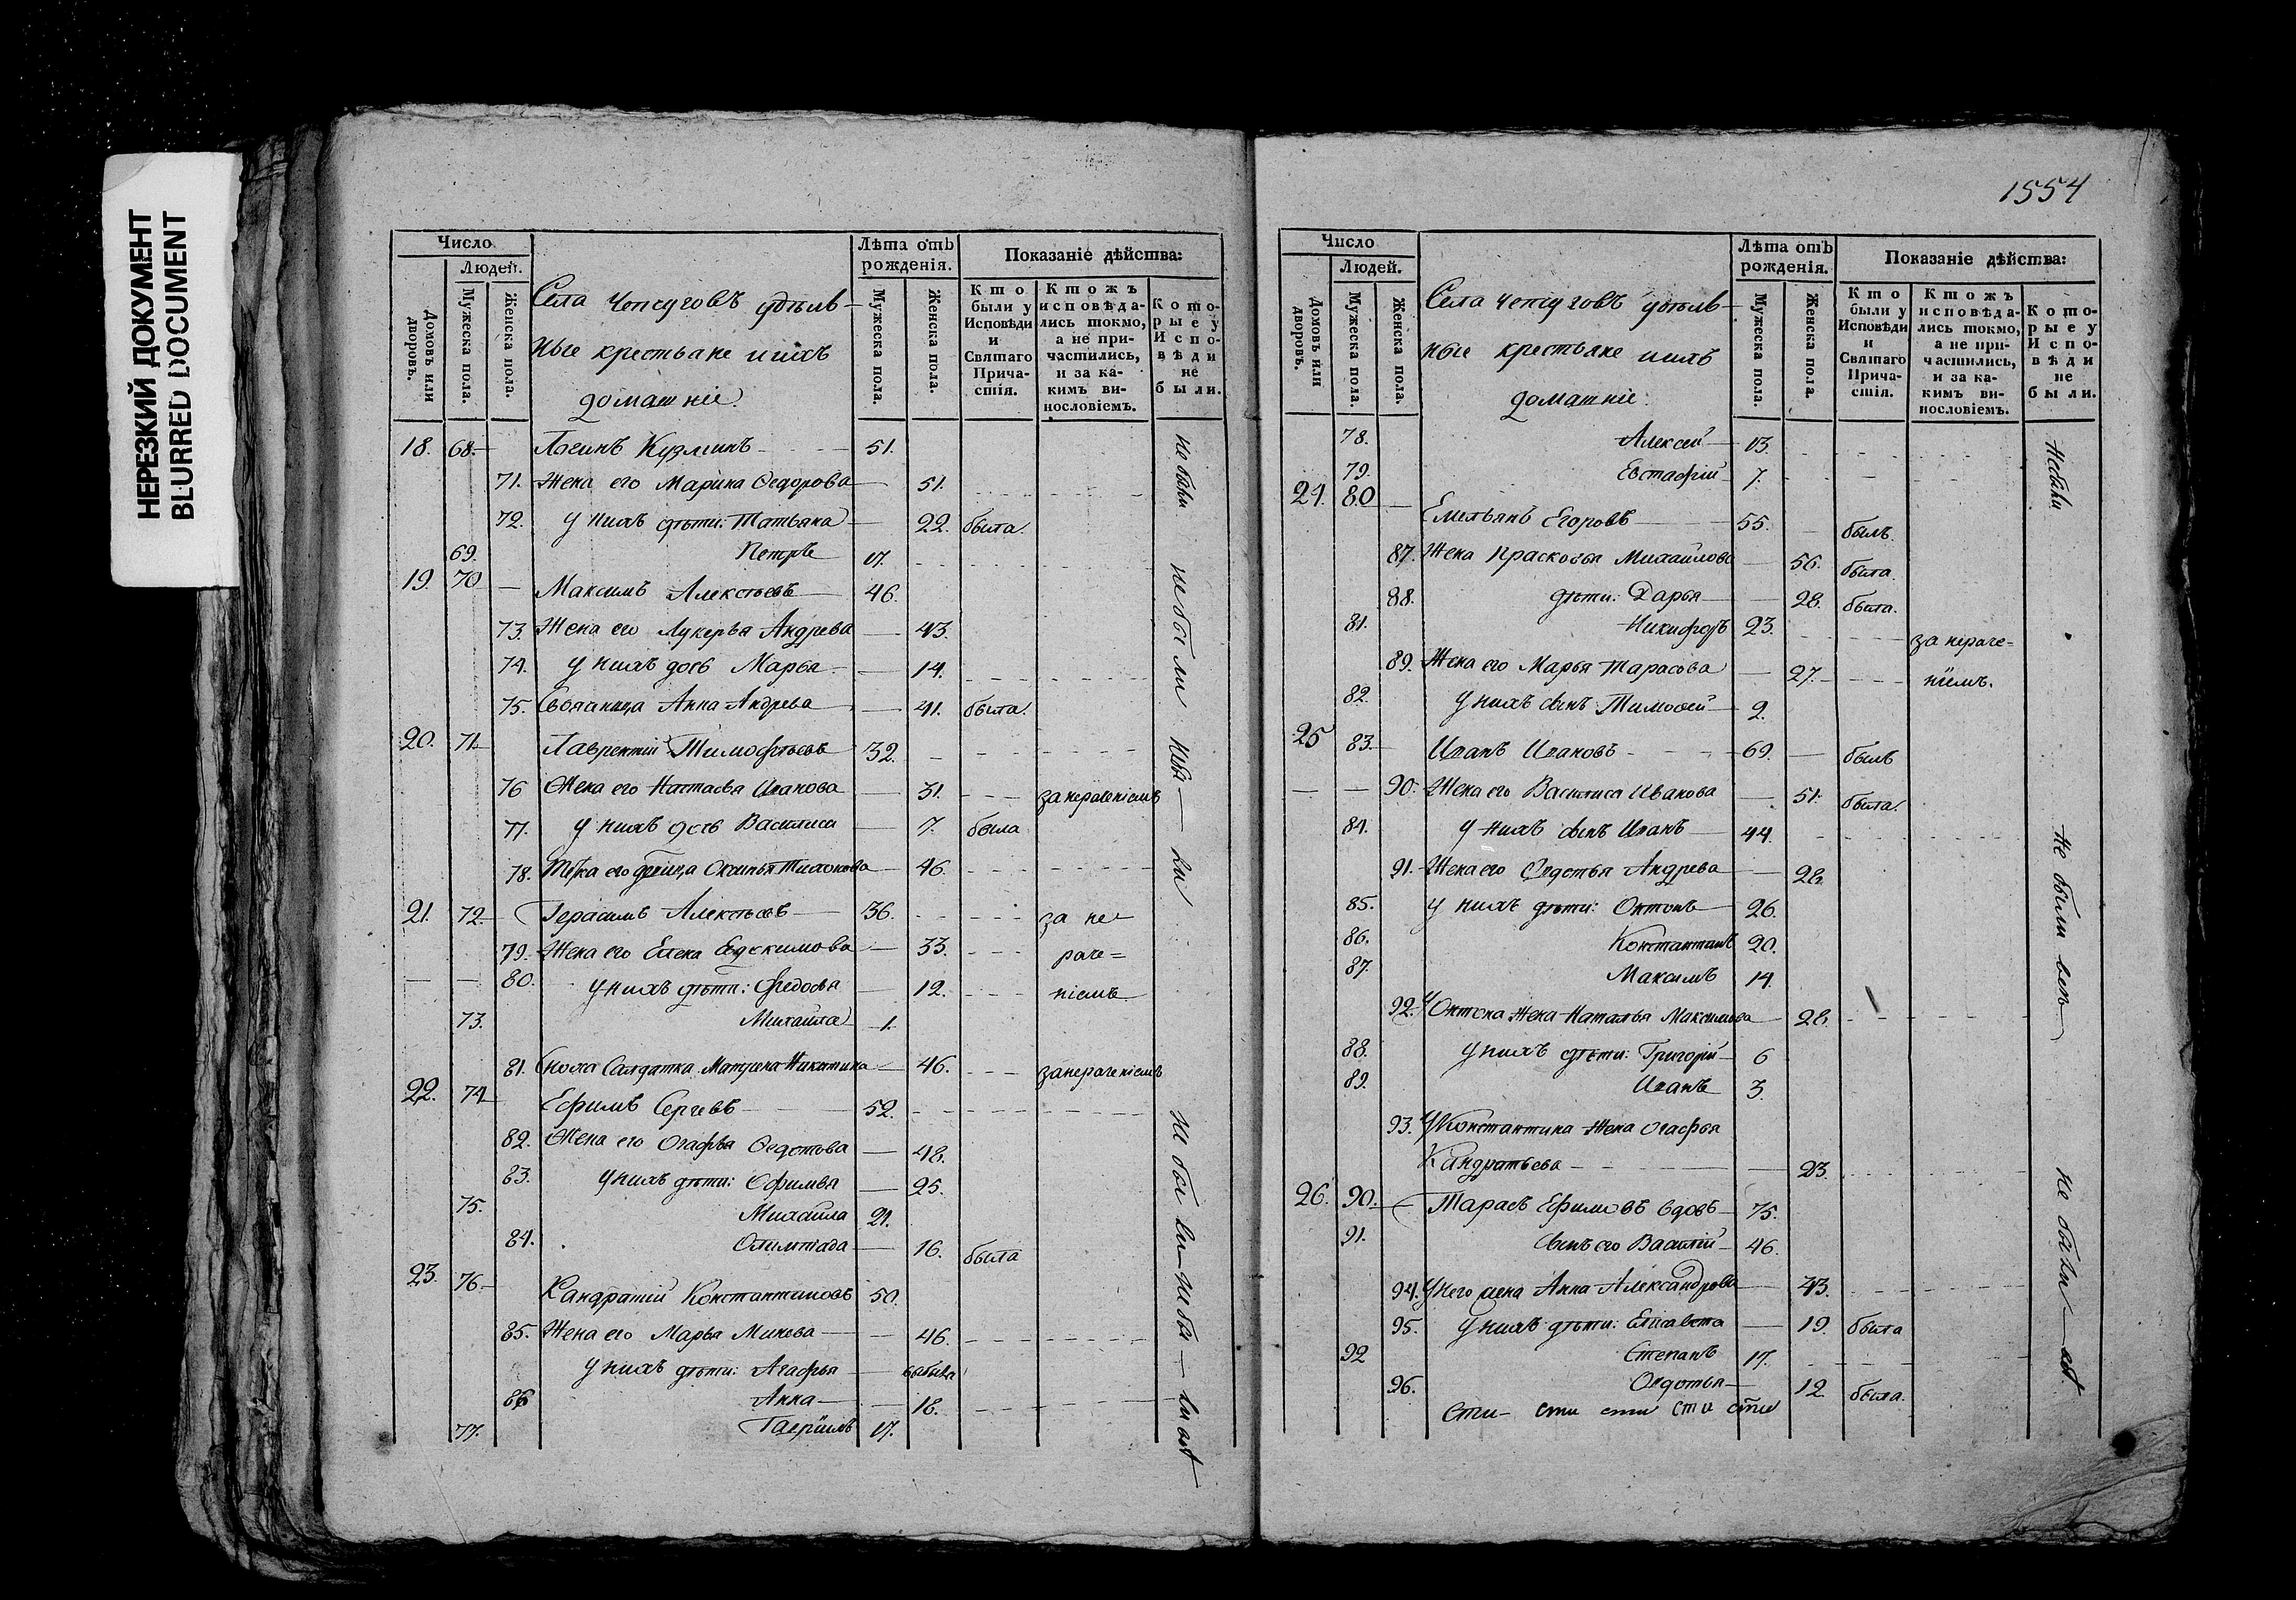 НЕРЕЗКИЙ ДОКУМЕНТ
BLURRED DOCUMENT
Число
Людей.
Домовъ или дворовъ.
Мужеска пола.
Женска пола.
Села Чепчуговъ удѣль-
ные крестьяне и ихъ
домашніе.
Лѣта отъ рожденія.
Мужеска пола.
Женска пола.
Показаніе дѣйства:
Кто были у Исповѣди и Святаго Причастія.
Ктожъ исповѣдались токмо, а не причастились, и за какимъ винословіемъ.
Которые у Исповѣди не были.
18. 68. Логинъ Кузминъ 51.
71. Жена его Марина Ѳедорова 51.
72. у нихъ дѣти: Татьяна 22. была.
69. Петръ 17.
19. 70 Максимъ Алексѣевъ 46.
73. Жена его Лукерья Андрева 43.
74. у нихъ дочь Марья 14.
75. Своячница Анна Андрева 41. была.
20. 71. Лаврентій Тимофѣевъ 32.
76 Жена его Настасья Иванова 31. за нераченіемъ
77. у нихъ дочь Василиса 7. была
78. его Тихонова 46.
21. 72. Герасимъ Алексѣевъ 36. за не-
79. Жена его Елена Евдокимова 33. раче=
80. у нихъ дѣти: Федосья 12. ніемъ
73. Михайла 1.
81. Салдатка Матрена Никитина 46. за нераченіемъ
22. 74. Ефимъ Сергевъ 52.
82. Жена его Огафья Ѳедотова 48.
83. у нихъ дѣти: Офимья 25.
75. Михайла 21.
84. Олимпіада 16. была
23. 76. Кандратій Константиновъ 50.
85. Жена его Марья Минева 46.
у нихъ дѣти: Агафья выбыла
86 Анна 18.
77. Гавріілъ 17.
не были
не были
не были
1554
Число
Людей.
Домовъ или дворовъ.
Мужеска пола.
Женска пола.
Села Чепчуговъ удѣль-
ные крестьяне и ихъ
домашніе.
Лѣта отъ рожденія.
Мужеска пола.
Женска пола.
Показаніе дѣйства:
Кто были у Исповѣди и Святаго Причастія.
Ктожъ исповѣдались токмо, а не причастились, и за какимъ винословіемъ.
Которые у Исповѣди не были.
78. Алексей 13.
79. Евстафій 7.
24. 80 Емельянъ Егоровъ 55. былъ.
87. Жена Прасковья Михайлова 56. была.
88. дѣти: Дарья 28. была.
81. Никифоръ 23. за нераче=
89. Жена его Марья Тарасова 27. ніемъ.
82. у нихъ сынъ Тимофей 2.
25 83. Иванъ Ивановъ 69. былъ
90. Жена его Василиса Иванова 51. была.
84. у нихъ сынъ Иванъ 44.
91. Жена его Ѳедотья Андрева 28.
85. у нихъ дѣти: Онтонъ 26.
86. Константинъ 20.
87. Максимъ 14.
92. У Онтона жена Наталья Максимова 28.
88. у нихъ дѣти: Григорій 6
89. Иванъ 3.
93. У Константина жена Огафья
Кандратьева 23.
26. 90. Тарасъ Ефимовъ вдовъ 75.
91. сынъ его Василій 46.
94. У него жена Анна Александрова 43.
95. у нихъ дѣти: Елисавета 19. была
92 Степанъ 17.
96. Ѳедотья 12. была.
Не были
Не были
Не были